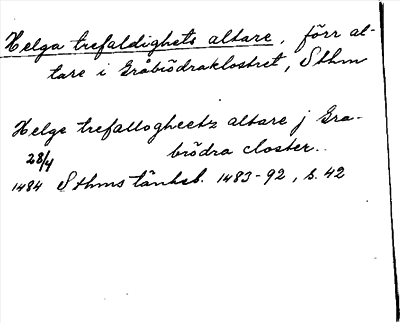 Helga trefaldighets altare, förr al-
tare i Gråbrödraklostret, Sthm
Helge trefalloghectz altare j Gra-
brödra closter..
28/4
1484 Sthms tänkeb. 1483-92, s. 42